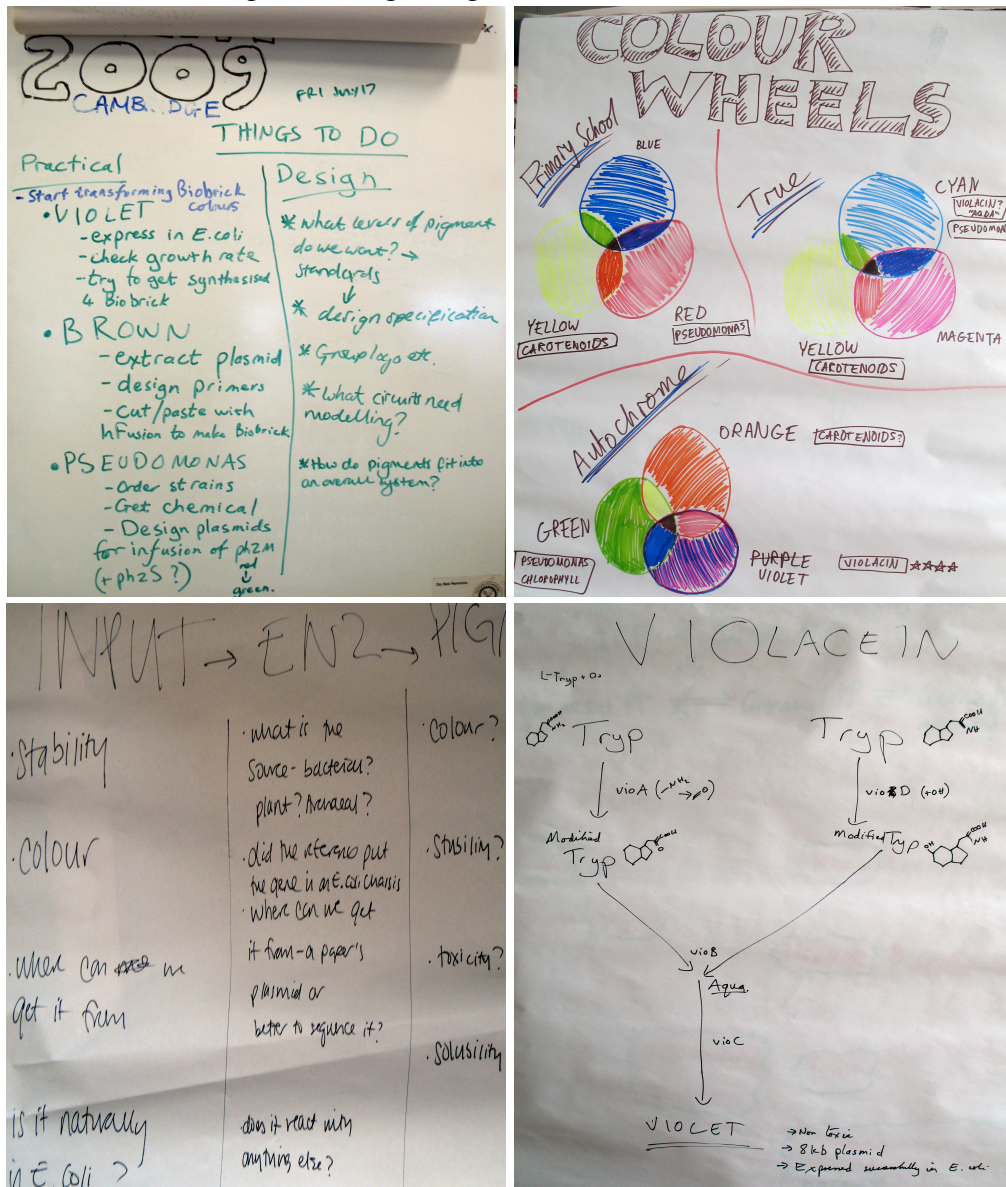 2009
CAMB DGE
FRI JULY 17
THINGS TO DO
Practical
- Start transforming Biobrick
colours
• VIOLET
- express in E.coli
- check growth rate
- try to get synthesised
4 Biobrick
• BROWN
- extract plasmid
- design primers
- Cut/paste with
InFusion to make Biobrick
• PSEUDOMONAS
- Order strains
- Get chemical
- Design plasmids
for infusion of phzM
(+ phzS ?)
red
↓
green.
Design
* What levels of pigment
do we want? →
standards
↓
* design specification
* Group logo etc.
* What circuits need
modelling?
* How do pigments fit into
an overall system?
COLOUR
WHEELS
Primary School
BLUE
YELLOW
CAROTENOIDS
RED
PSEUDOMONAS
True
CYAN
VIOLACIN?
"AQUA"
PSEUDOMON
MAGENTA
YELLOW
CAROTENOIDS
Autochrome
ORANGE CAROTENOIDS?
GREEN
PSEUDOMONAS
CHLOROPHYLL
PURPLE
VIOLET
VIOLACIN ☆☆☆☆
INPUT → ENZ → PIG
• Stability
• Colour
• where can we
get it from
is it naturally
in E. coli ?
• what is the
source - bacterial?
plant? Archaeal?
• did the reference put
the gene in an E.coli chassis
• where can we get
it from - a paper's
plasmid or
better to sequence it?
• does it react with
anything else?
• Colour?
• Stability?
• toxicity?
• Solubility
VIOLACEIN
L-Tryp + O₂
Tryp
COOH
NH₂
vioA (-NH₂
→ O)
Modified
Tryp
COOH
O
Tryp
COOH
NH
vioD (+OH)
Modified Tryp
OH
COOH
NH
vioB
Aqua.
vioC
VIOLET
→ Non toxic
→ 8kb plasmid
→ Expressed successfully in E. coli.